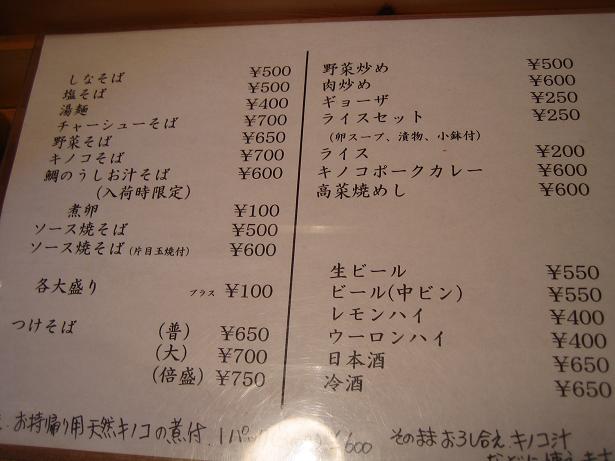 しなそば ¥500
塩そば ¥500
湯麺 ¥400
チャーシューそば ¥700
野菜そば ¥650
キノコそば ¥700
鯛のうしお汁そば ¥600
(入荷時限定)
煮卵 ¥100
ソース焼そば ¥500
ソース焼そば(片目玉焼付) ¥600
各大盛り プラス ¥100
つけそば (普) ¥650
(大) ¥700
(倍盛) ¥750
野菜炒め ¥500
肉炒め ¥600
ギョーザ ¥250
ライスセット ¥250
(卵スープ、漬物、小鉢付)
ライス ¥200
キノコポークカレー ¥600
高菜焼めし ¥600
生ビール ¥550
ビール(中ビン) ¥550
レモンハイ ¥400
ウーロンハイ ¥400
日本酒 ¥650
冷酒 ¥650
お持帰り用天然キノコの煮付、1パック ¥600
そのままおろし合え キノコ汁
などに使えます